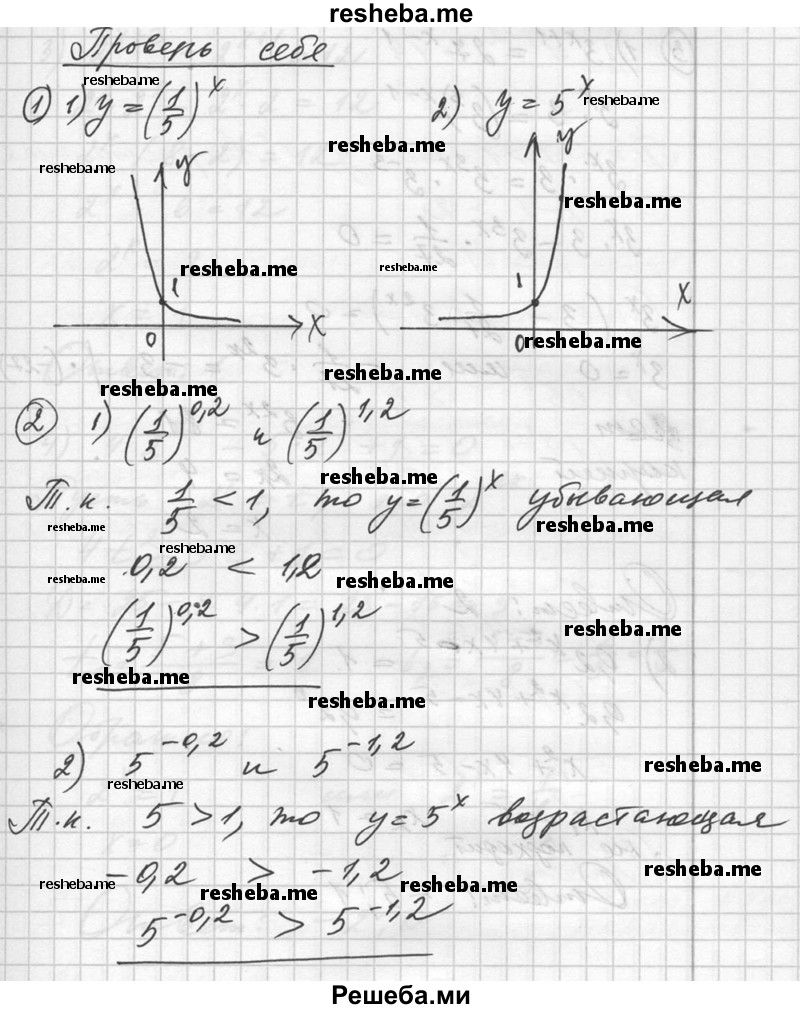 resheba.me
Проверь себя
resheba.me
① 1) y = (1/5)^x 2) y = 5^x resheba.me
resheba.me
resheba.me y y
resheba.me
resheba.me resheba.me
1 1 x
0 x 0 resheba.me
resheba.me resheba.me
② 1) (1/5)^0,2 и (1/5)^1,2
resheba.me
Т.к. 1/5 < 1, то y = (1/5)^x убывающая
resheba.me resheba.me
resheba.me
resheba.me 0,2 < 1,2 resheba.me
(1/5)^0,2 > (1/5)^1,2 resheba.me
resheba.me
resheba.me
2) 5^-0,2 и 5^-1,2 resheba.me
resheba.me
Т.к. 5 > 1, то y = 5^x возрастающая
-0,2 > -1,2 resheba.me
resheba.me resheba.me resheba.me
5^-0,2 > 5^-1,2
Решеба.ми